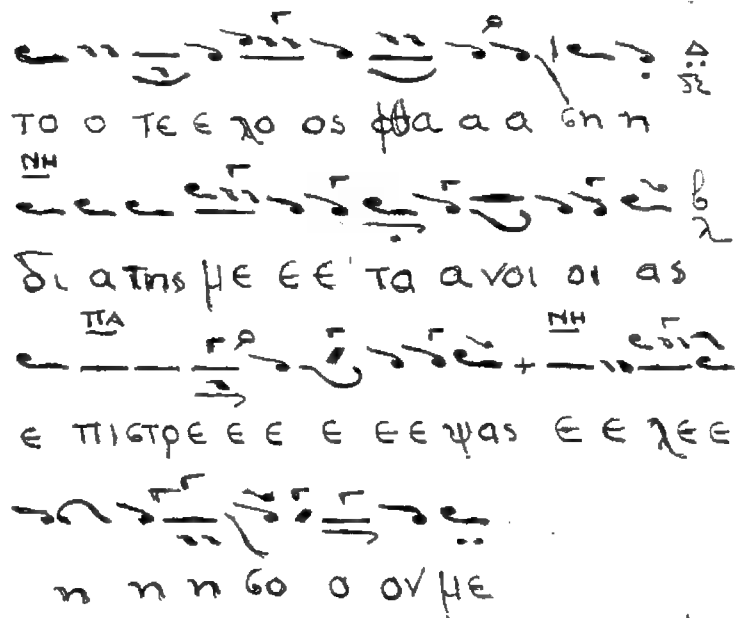 το ο τε ε λο ος φθα α α ση η
ΝΗ
δι α της με ε ε τα α νοι οι ας
ΠΑ ΝΗ
ε πιστρε ε ε ε ε ε ψας ε ε λε ε
η η η σο ο ον με